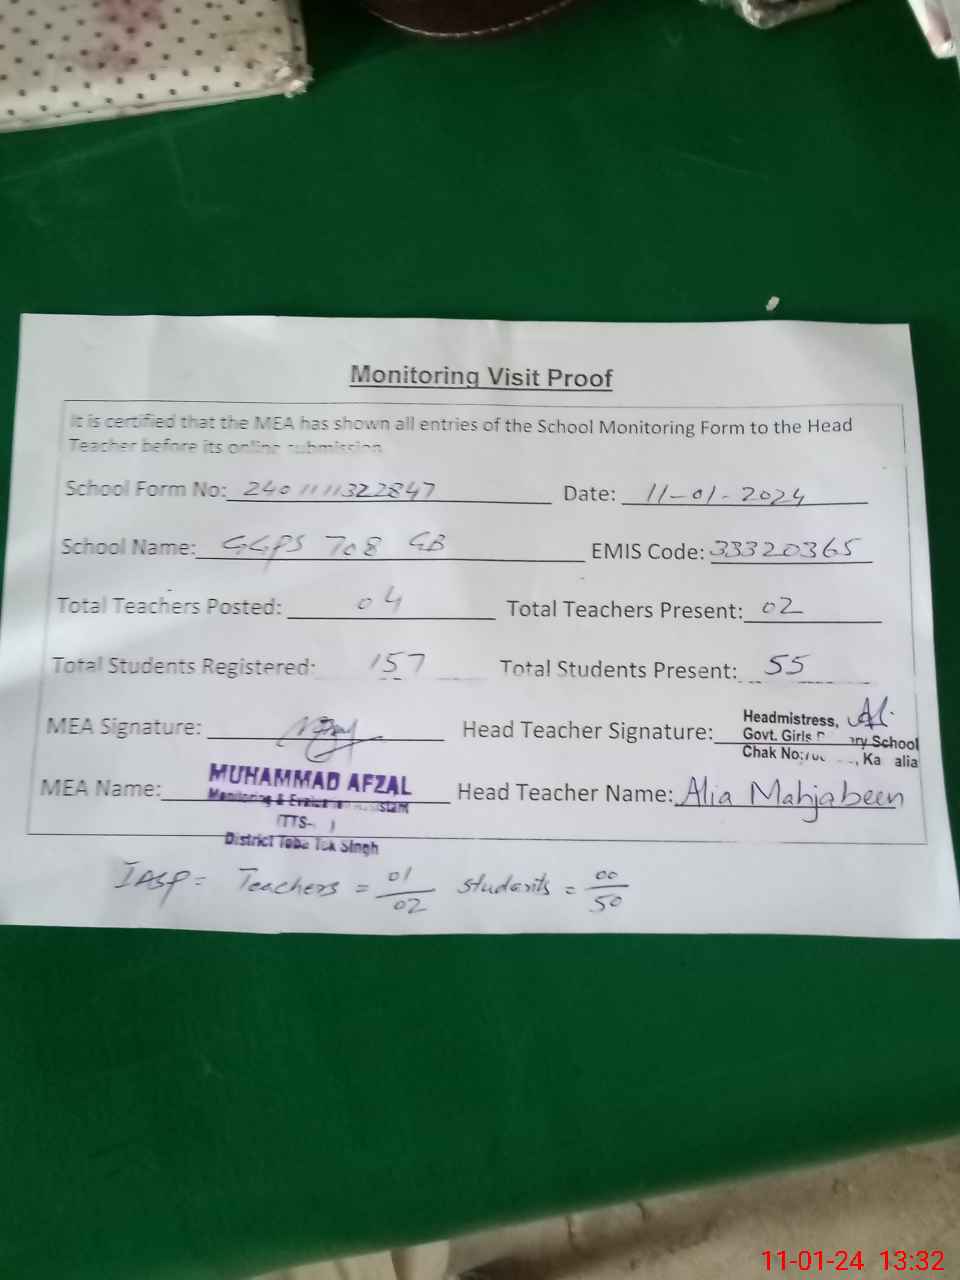 Monitoring Visit Proof
It is certified that the MEA has shown all entries of the School Monitoring Form to the Head
Teacher before its online submission
School Form No: 2401111322847 Date: 11-01-2024
School Name: GGPS 708 GB EMIS Code: 33320365
Total Teachers Posted: 04 Total Teachers Present: 02
Total Students Registered: 157 Total Students Present: 55
MEA Signature: Head Teacher Signature:
Headmistress,
Govt. Girls School
Chak No:
MEA Name: MUHAMMAD AFZAL Head Teacher Name: Alia Mahjabeen
Monitoring &
District Toba Tek Singh
IASP = Teachers = 01/02 students = 00/50
11-01-24 13:32